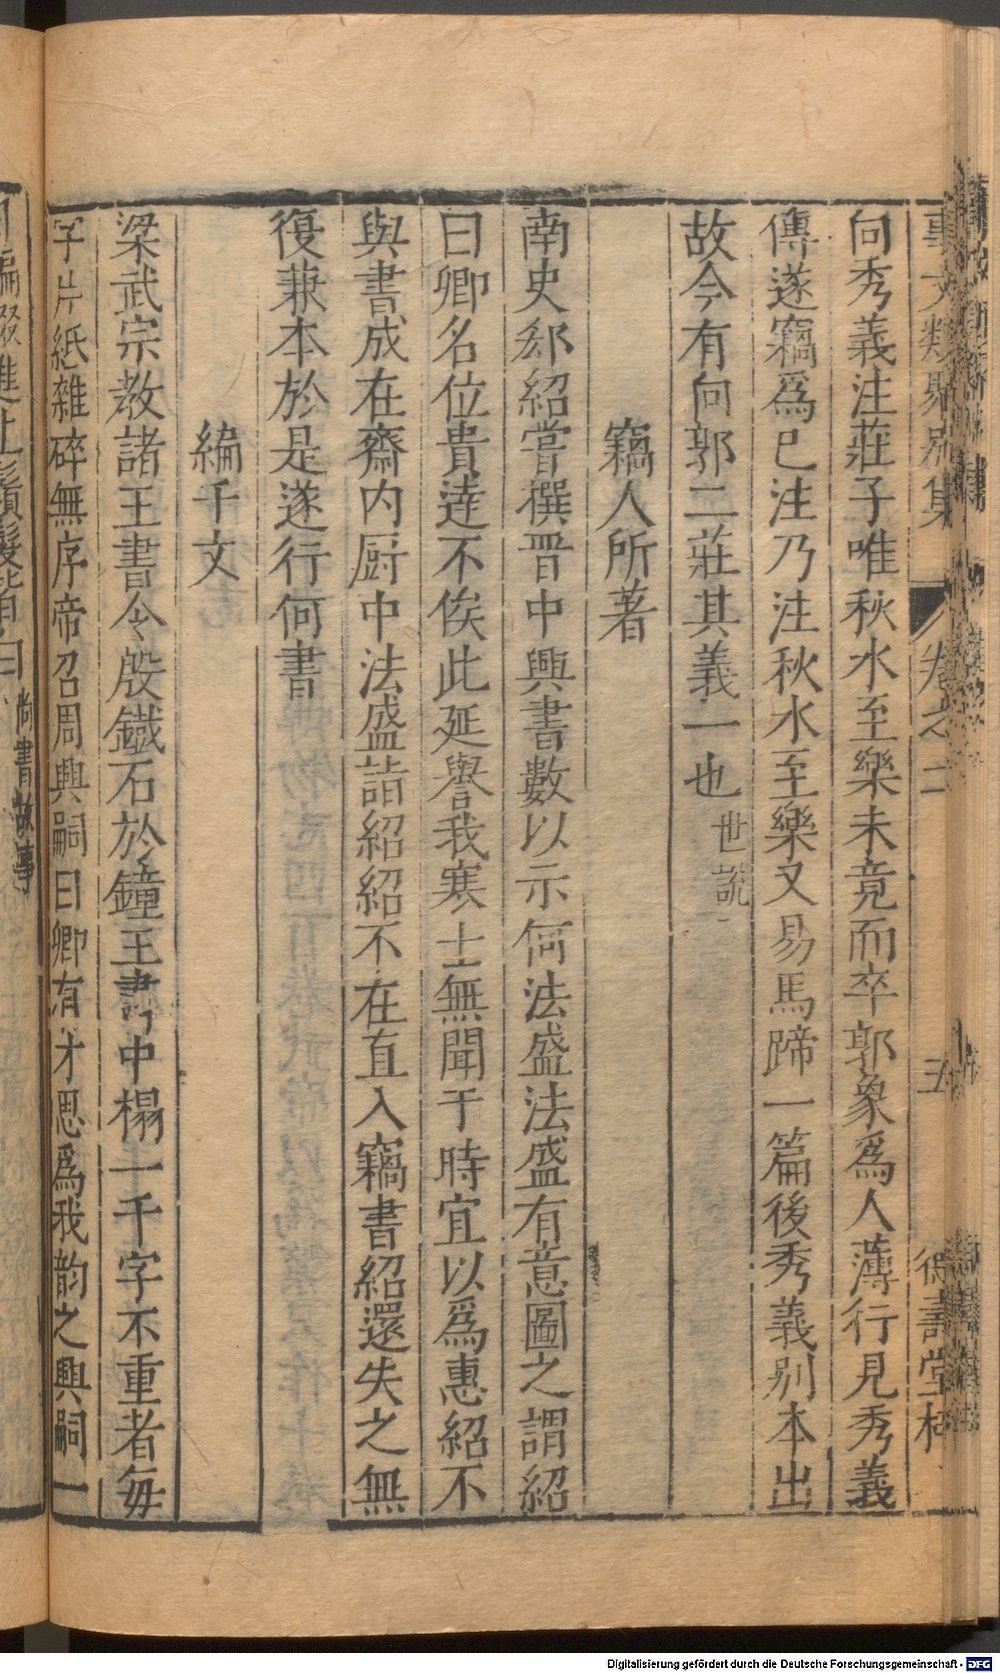 事文類聚別集 卷之二 五
向秀義注莊子唯秋水至樂未竟而卒郭象爲人薄行見秀義
傳遂竊爲已注乃注秋水至樂又易馬蹄一篇後秀義別本出
故今有向郭二莊其義一也世說
竊人所著
南史郄紹嘗撰晋中興書數以示何法盛法盛有意圖之謂紹
曰卿名位貴逹不俟此延譽我寒士無聞于時宜以爲惠紹不
與書成在齋内厨中法盛詣紹紹不在直入竊書紹還失之無
復兼本於是遂行何書
編千文
梁武宗教諸王書令殷鐵石於鐘王書中榻一千字不重者毎
字片紙雜碎無序帝召周興嗣曰卿有才思爲我韵之興嗣一
編綴進上鬚髮皆白尚書故事
Digitalisierung gefördert durch die Deutsche Forschungsgemeinschaft - DFG